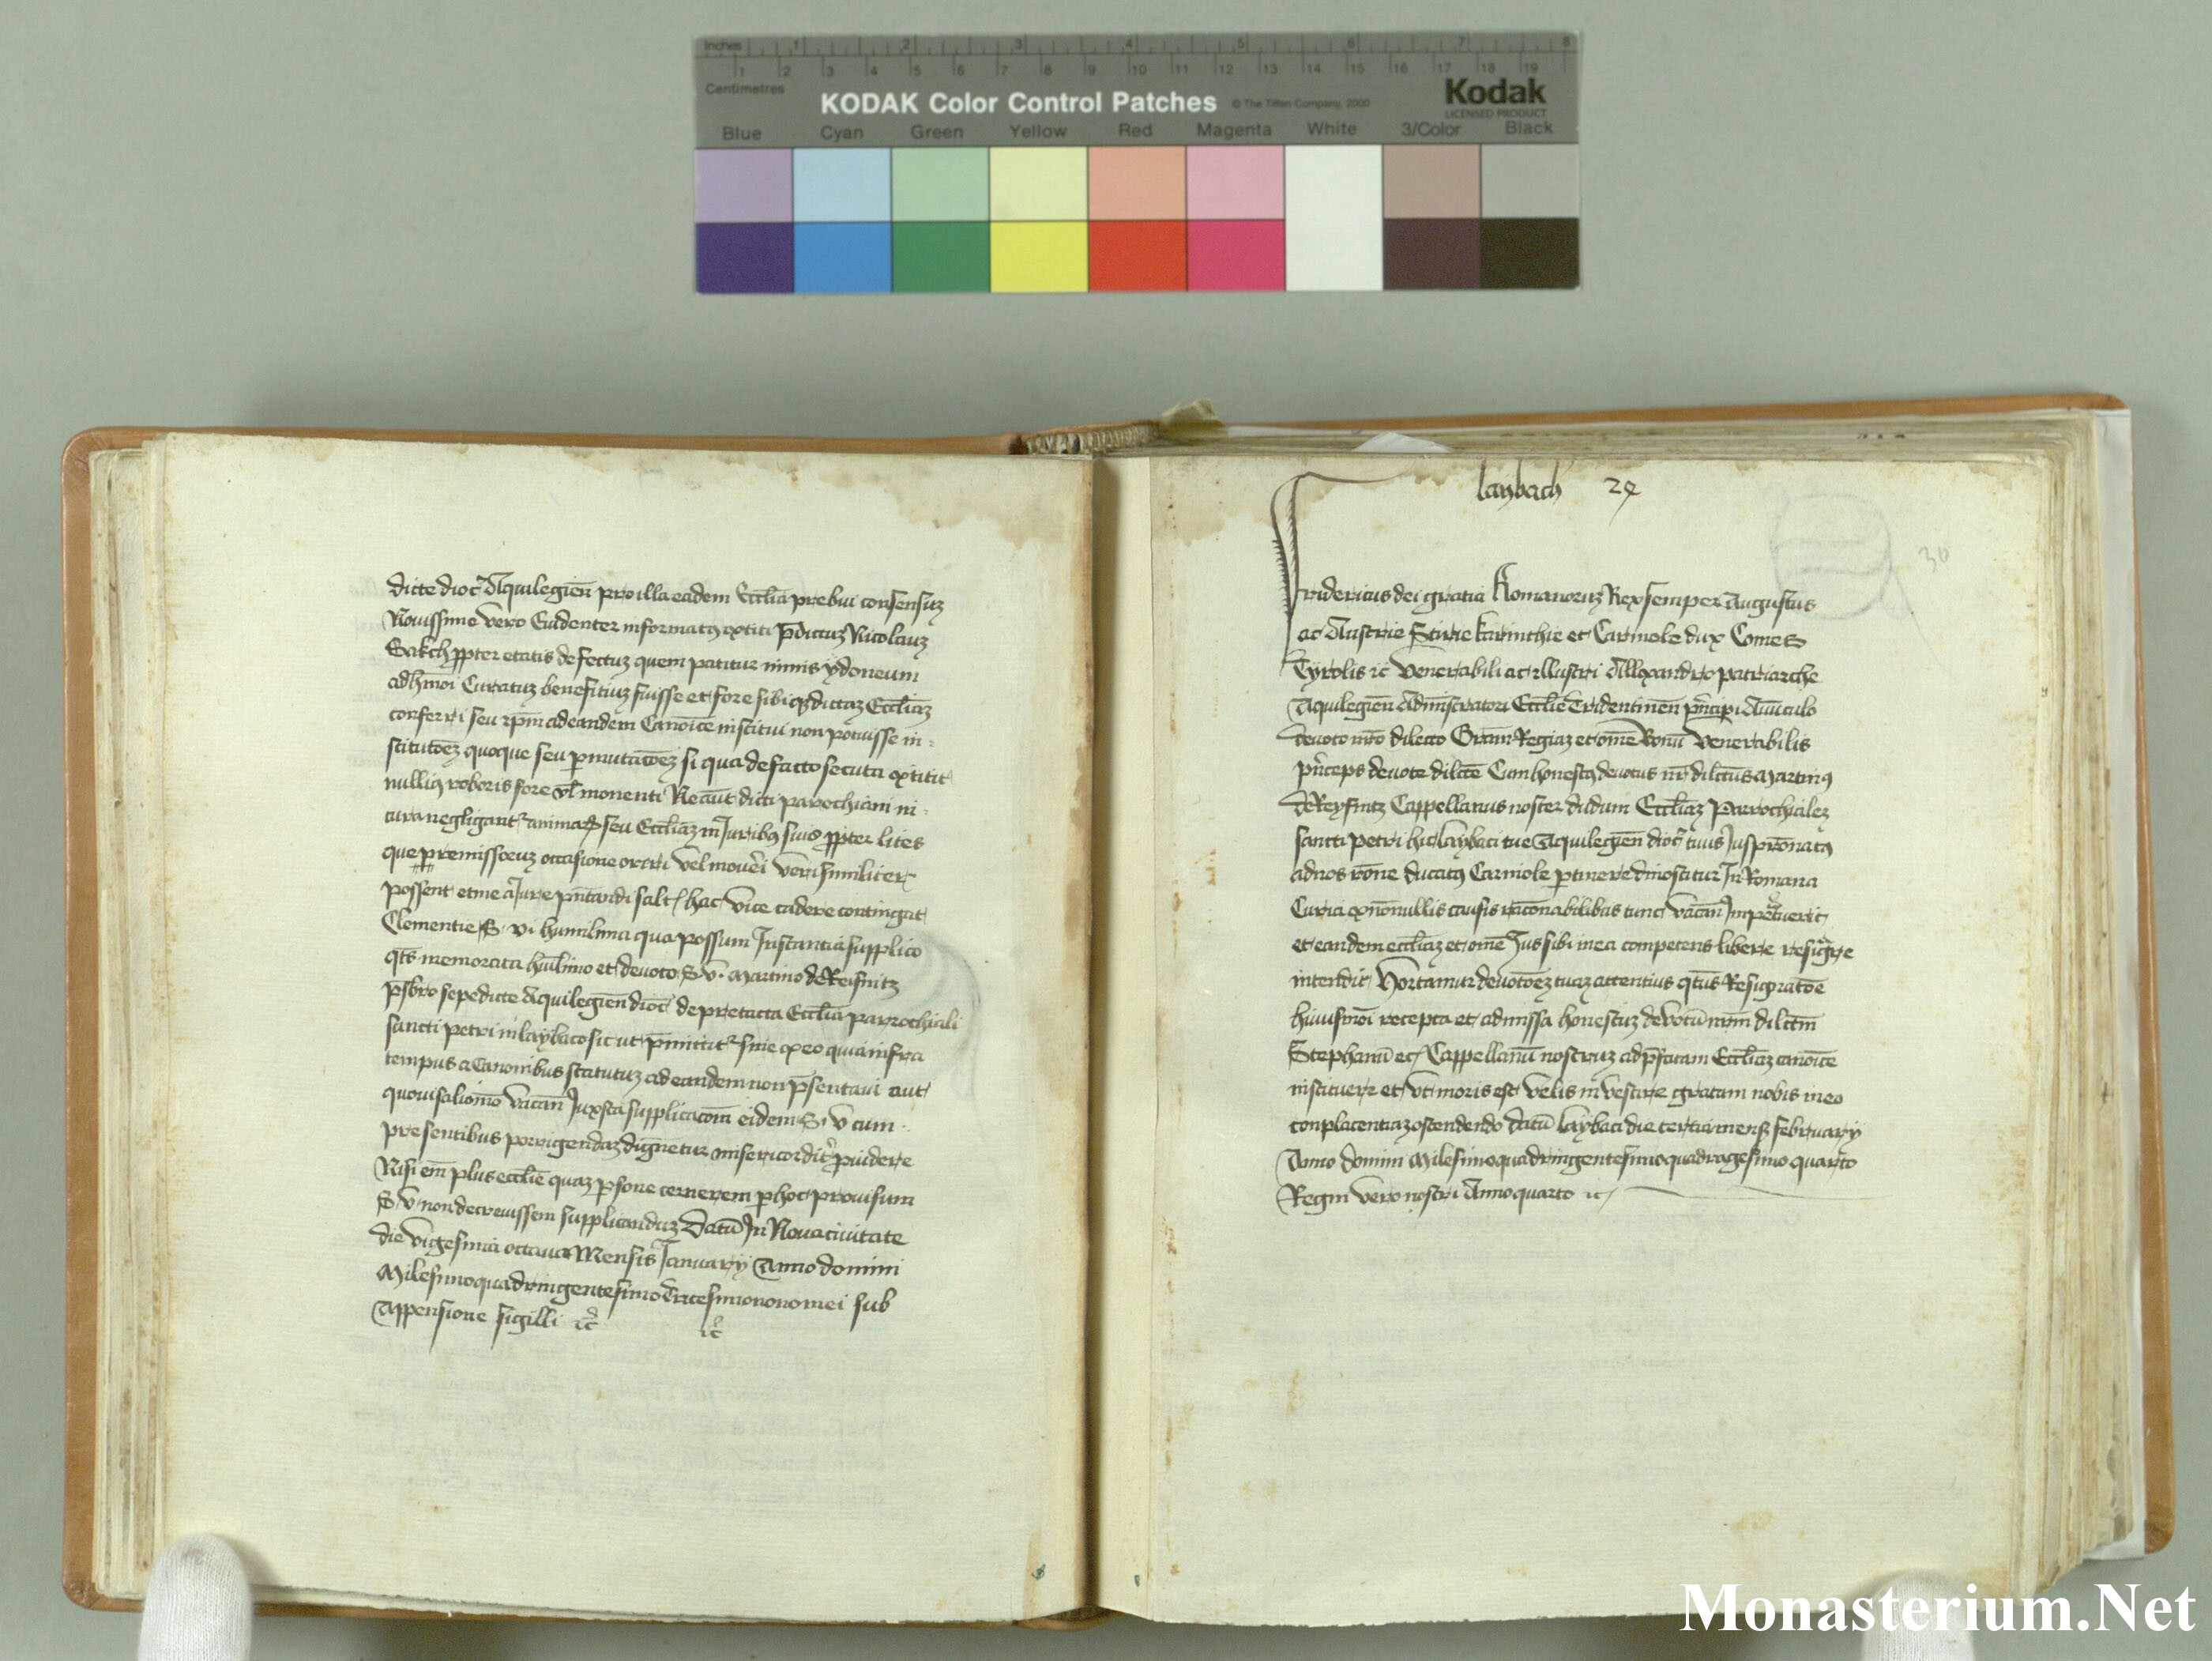 Inches 1 2 3 4 5 6 7 8
1 2 3 4 5 6 7 8 9 10 11 12 13 14 15 16 17 18 19
Centimetres
KODAK Color Control Patches © The Tiffen Company, 2000 Kodak
LICENSED PRODUCT
Blue Cyan Green Yellow Red Magenta White 3/Color Black
dicte dioc̄ Aquilegieñ pro illa eadem Eccl̄ia prebui consensuz
Nouissime vero Euidenter informatꝫ extiti p̄dictuz Nicolauz
ꝓpter etatis defectuz quem patitur minus ydoneum
adhm̄oi Curatuz benefitiuz fuisse et fore sibiqꝫ dictaz Eccl̄iaz
conferri seu ip̄m ad eandem Canoīce institui non potuisse in-
stitutōez quoque seu ꝑmutatōez si qua de facto secuta extitit
nulliꝫ roboris fore vl̄ momenti Ne aūt dicti parochiani in
cura negligantᵉ animaꝝ seu Eccl̄iaz in Juribꝫ suis ꝓpter lites
que premissoruz occasione oriri vel mouēi verisimiliter
possent et me a Jure pn̄tandi salt hac vice cadere contingat
Clementie S. v. humilima qua possum Instantia supplico
qt̄s memorata humil̄imo et deuoto S. v. Martino de Reifnitz
p̄sbro sepedicte Aquilegieñ dioc̄ de pretacta Eccl̄ia parrochiali
sancti petri in laybaco sicut p̄mittitᵉ siue ex eo quia infra
tempus a Canonibus statutuz ad eandem non p̄sentaui aut
quouis alio mō vacañ Juxta supplicatōm eidem S. v. cum
presentibus porrigendaz dignetur misericordit ꝓuidere
Nisi em̄ plus eccl̄ie quaz ꝑsone cernerem ꝑ hoc prouisum
S. v. non decreuissem supplicanduz Datū In Nouaciuitate
die vigesima octaua Mensis January Anno domini
Milesimoquadringentesimo Tricesimonono mei sub
Appensione sigilli ꝛc̄ ꝛc̄
laybach 29
30
Fridericus dei gratia Romanoruz Rex semper Augustus
ac Austrie Stirie karinthie et Carniole dux Comes
Tyrolis ꝛc̄ Venerabili ac illustri Allexandro patriarche
Aquilegieñ Administratori Eccl̄ie Tridentineñ pn̄cipi Auūculo
deuoto nr̄o dilecto Grām Regiaz et om̄e bonū Venerabilis
pn̄ceps deuote dilct̄e Cum honestꝫ deuotus nr̄ dilct̄us Martinꝫ
de Reyfnitz Cappellanus noster dudum Eccl̄iaz Parrochialez
sancti petri hic laybaci tue Aquilegieñ dioc̄ cuius Juspr̄onatꝫ
ad nos rōne ducatꝫ Carniole ꝑtinere dinoscitur In Romana
Curia ex nōnullis causis ratōnabilibus tunc vacañ Impetuerit
et eandem eccl̄iaz et om̄e Jus sibi in ea competens libere resigre
intendit Hortamur deuotōez tuaz attentius qt̄us Resignatōe
huiusmōi recepta et admissa honestuz deuotū nr̄m dilct̄m
Stephanū ec Cappellanū nostruz ad p̄fatam Eccl̄iaz canoīce
instituere et vt moris est velis inuestire gratam nobis in eo
conplacentiaz ostendendo datū laybaci die tertia mensꝫ february
Anno domini Milesimoquadringentesimoquadragesimo quarto
Regni vero nostri Anno quarto ꝛc
Monasterium.Net